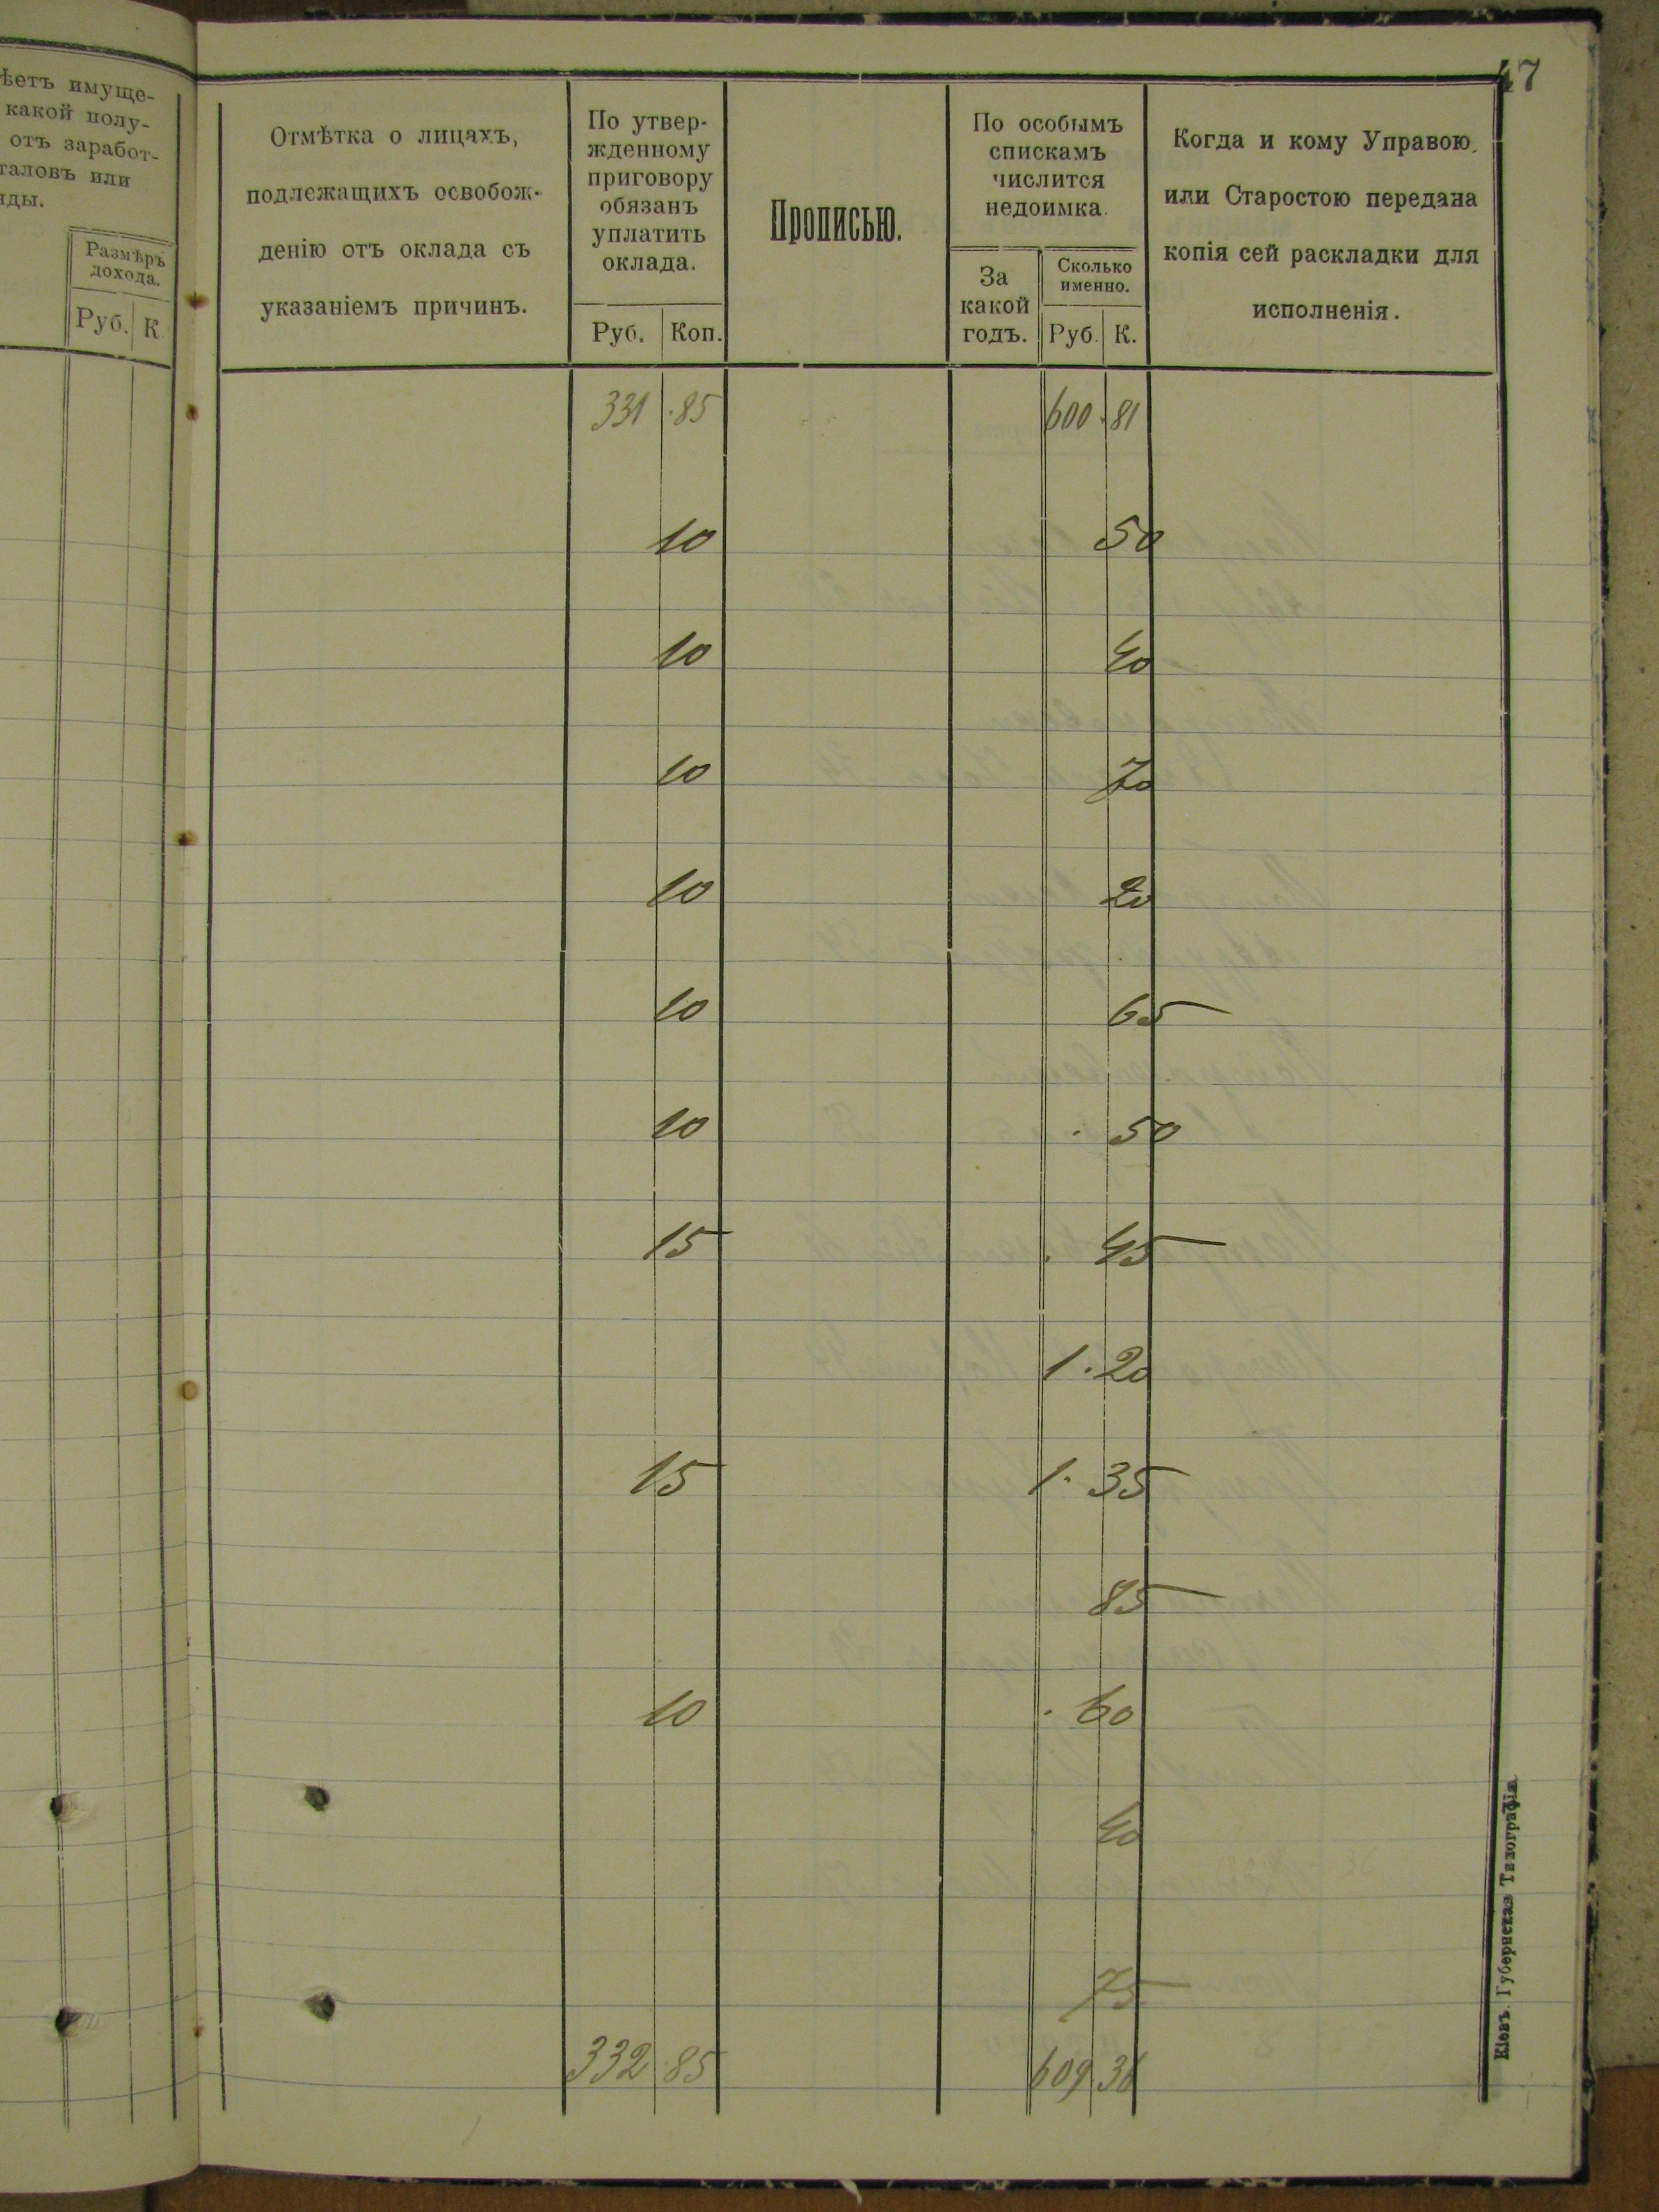 47
ѣетъ имуще-
какой полу-
отъ заработ-
галовъ или
нды.
Размѣръ
дохода.
Руб. К
Отмѣтка о лицахъ,
подлежащихъ освобож-
денію отъ оклада съ
указаніемъ причинъ.
По утвер-
жденному
приговору
обязанъ
уплатить
оклада.
Руб. Коп.
Прописью.
По особымъ
спискамъ
числится
недоимка.
За
какой
годъ.
Сколько
именно.
Руб. К.
Когда и кому Управою
или Старостою передана
копія сей раскладки для
исполненія.
331 . 85 600 . 81
10 50
10 40
10 70
10 20
10 65
10 . 50
15 . 45
1 . 20
15 1 . 35
85
10 . 60
40
75
332 . 85 609 . 36
Кіевъ. Губернская Типографія.